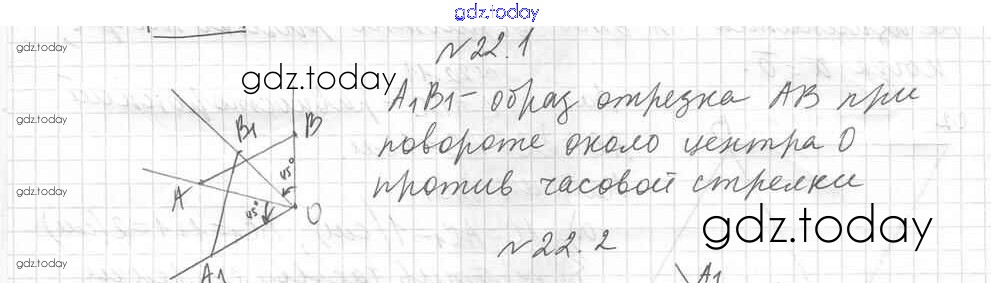 gdz.today
gdz.today
№22.1
gdz.today
A₁B₁ - образ отрезка AB при
повороте около центра O
против часовой стрелки
B₁
B
45°
gdz.today
A
45°
O
gdz.today
№22.2
gdz.today
A₁
A₁